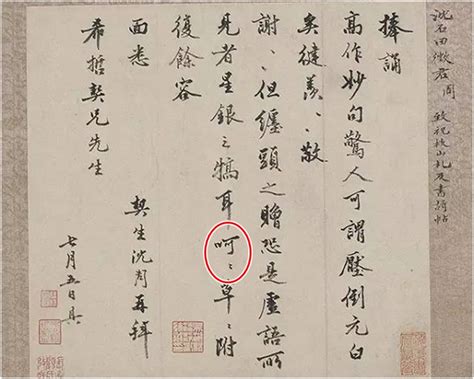 沈石田徵君周　致祝枝山札及書詩帖
捧誦
高作妙句驚人可謂壓倒元白
矣健羨〻敬
謝〻但纏頭之贈恐是虛語所
見者星銀之犒耳呵〻草〻附
復餘容
面悉
希哲契兄先生
契生沈周再拜
七月五日具